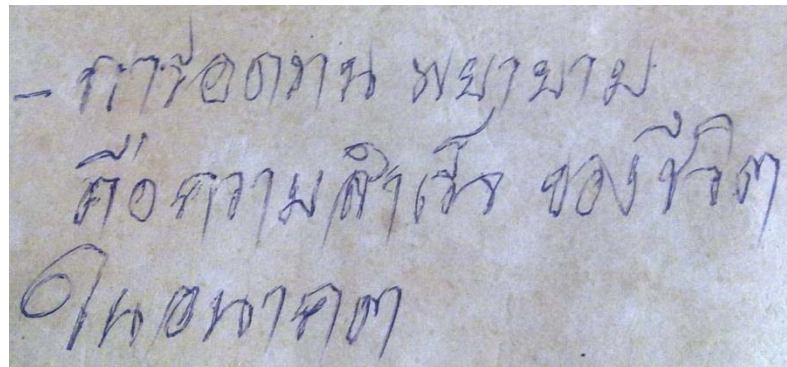 - การอดทน พยายาม
คือความสำเร็จ ของชีวิต
ในอนาคต